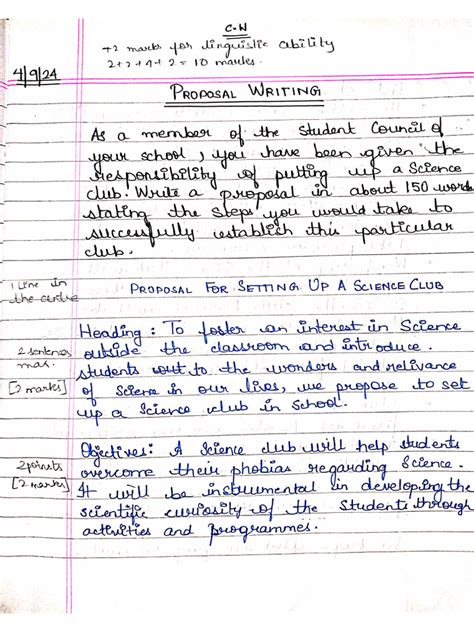 C.W
+2 marks for linguistic ability
2+2+4+2 = 10 marks.
4/9/24
PROPOSAL WRITING
As a member of the Student Council of
your school, you have been given the
responsibility of putting up a Science
club. Write a proposal in about 150 words
stating the steps you would take to
successfully establish this particular
club.
1 Line in
the centre
PROPOSAL FOR SETTING UP A SCIENCE CLUB
Heading: To foster an interest in Science
2 sentences
max.
[2 marks]
outside the classroom and introduce
students out to the wonders and relivance
of Science in our lives, we propose to set
up a Science club in School.
Objectives: A Science club will help students
2 points
[2 marks]
overcome their phobias regarding Science.
It will be instrumental in developing the
scientific curiosity of the Students through
activities and programmes.